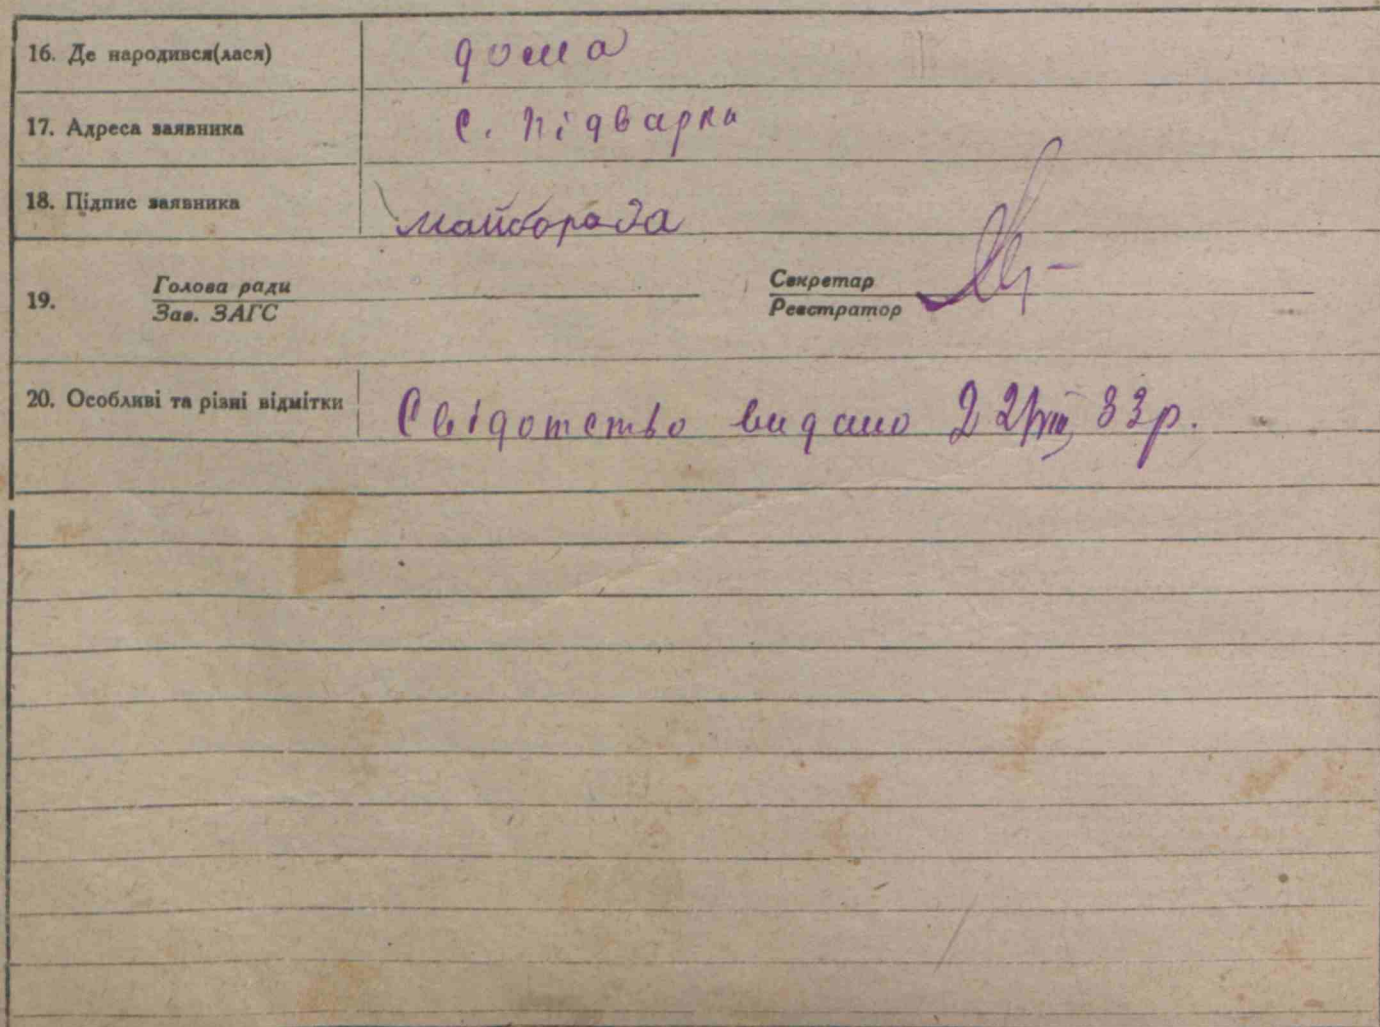 16. Де народився(лася) дома
17. Адреса заявника с. Підварки
18. Підпис заявника Майборода
19. Голова ради Секретар
Зав. ЗАГС Реєстратор
20. Особливі та різні відмітки Свідотство видано 22/VIII 33р.